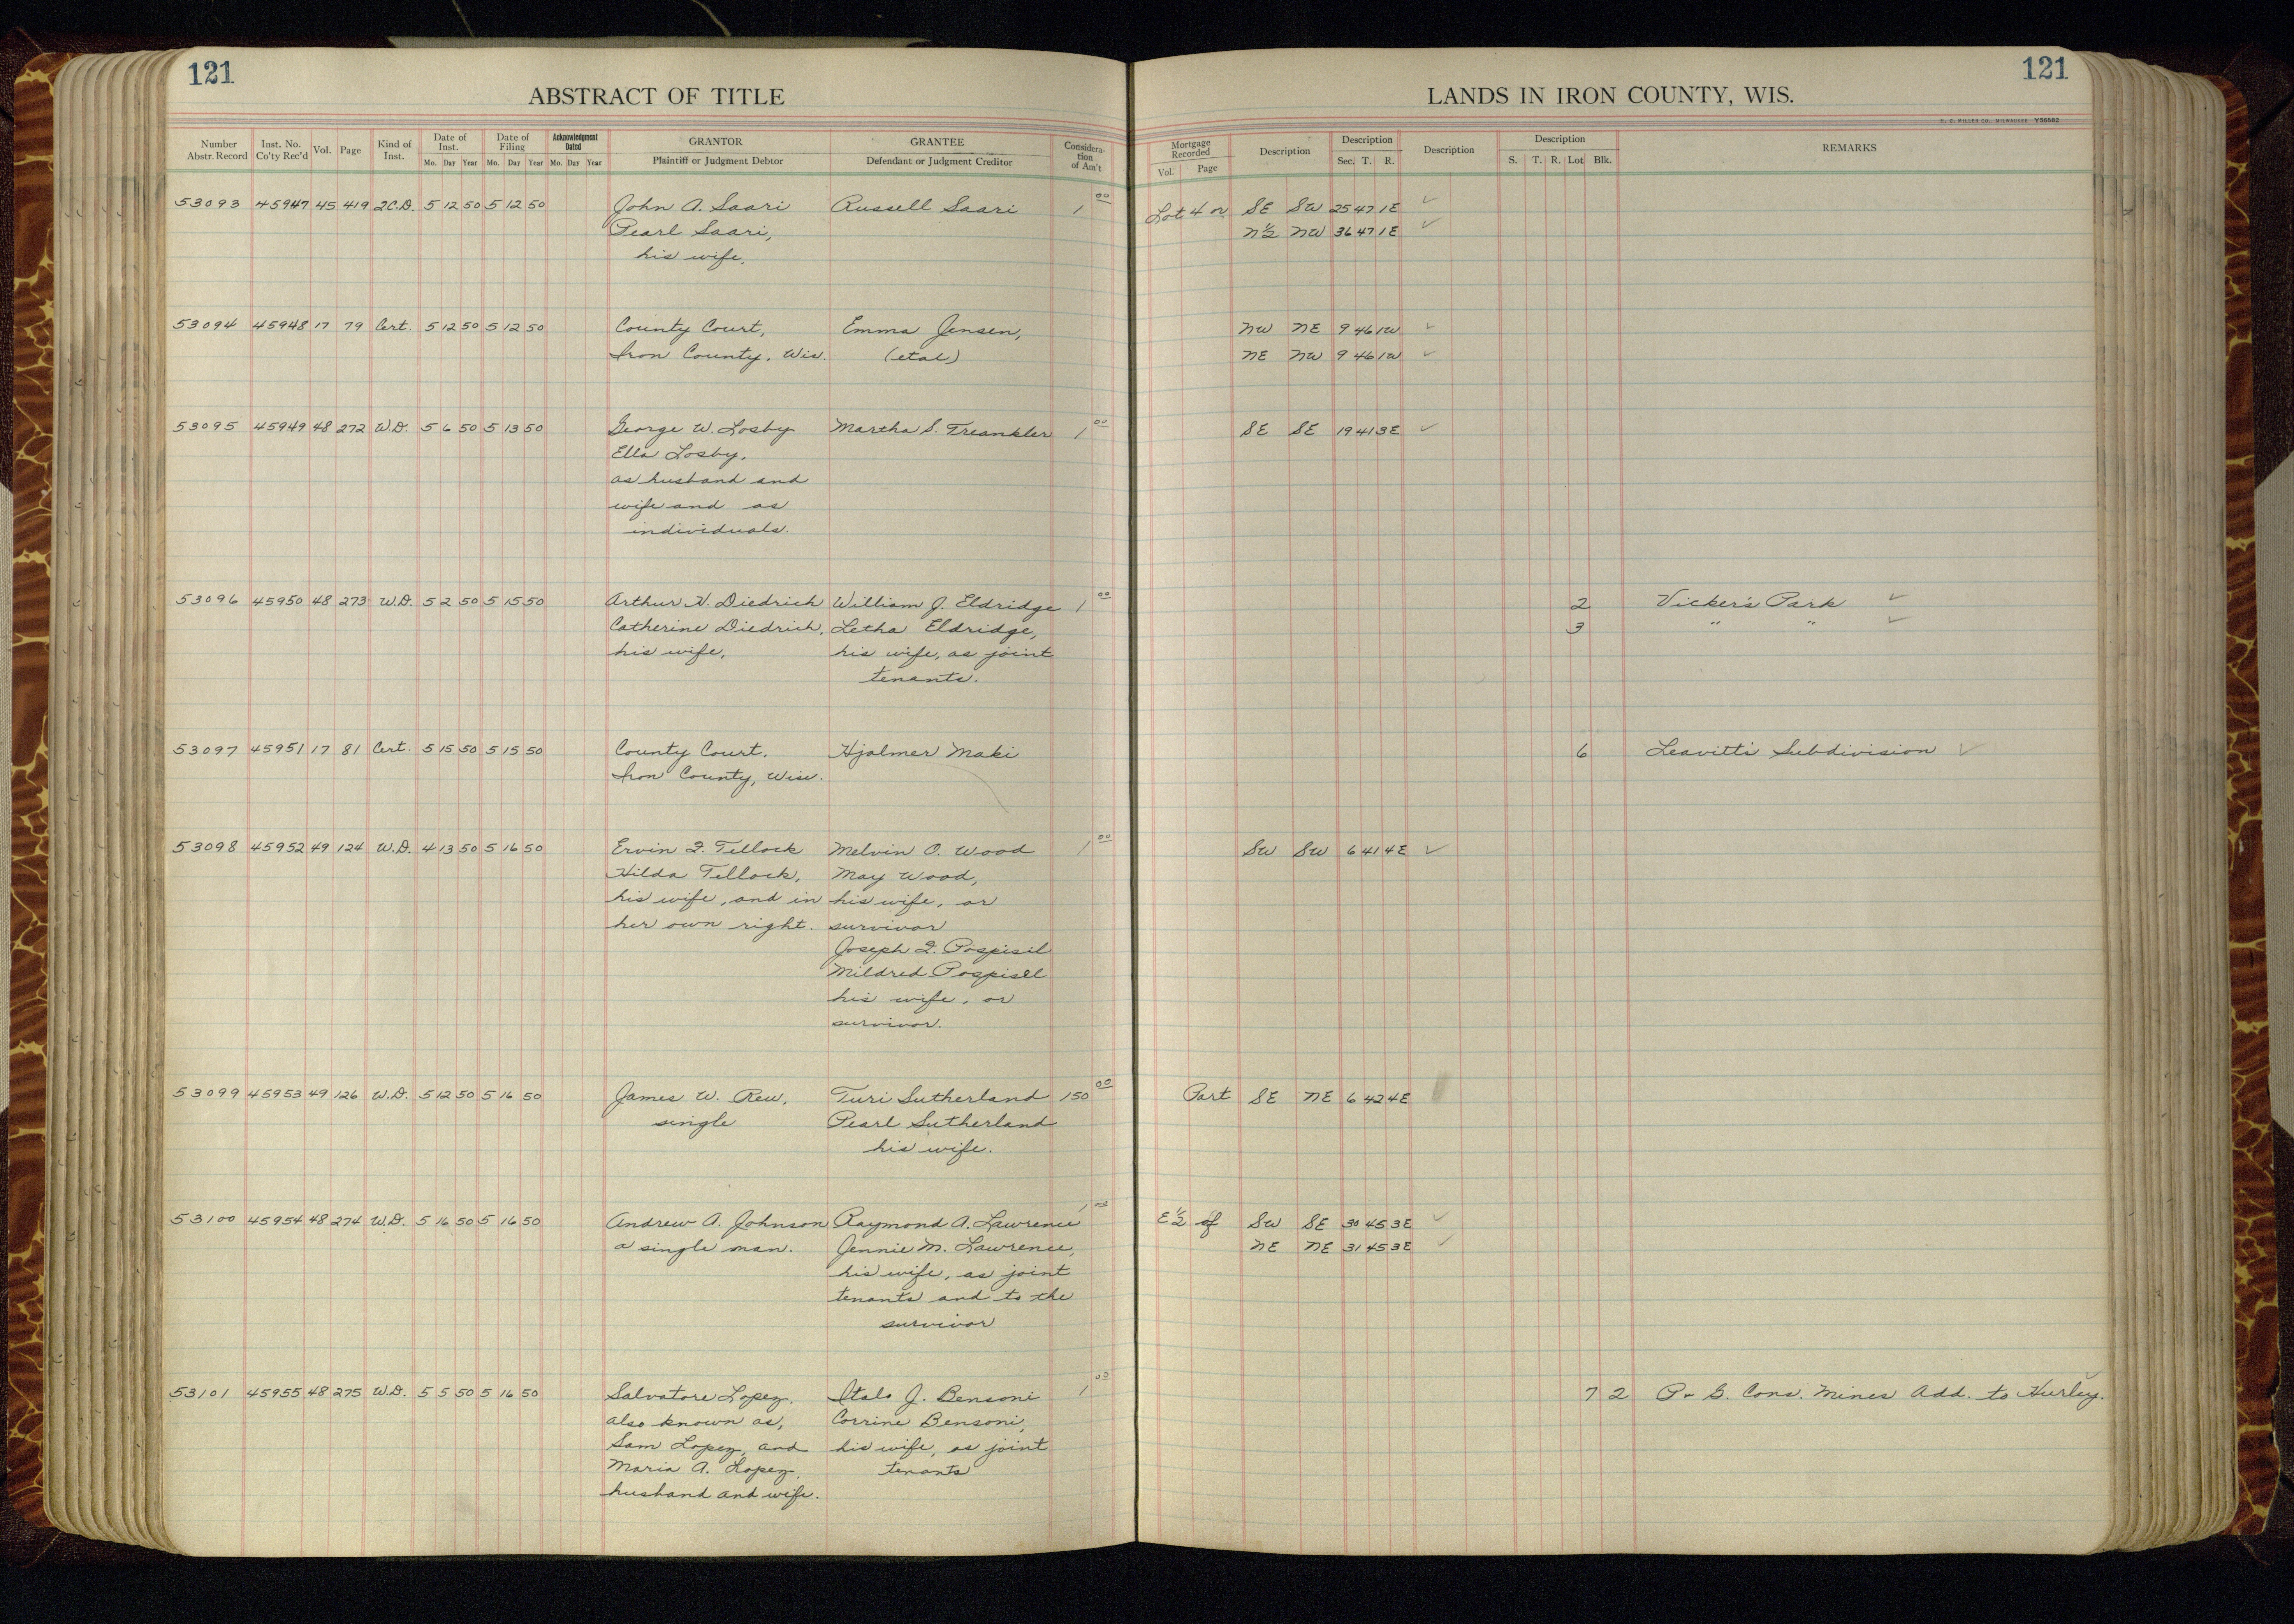 121
ABSTRACT OF TITLE
Number Abstr. Record | Inst. No. Co'ty Rec'd | Vol. | Page | Kind of Inst. | Date of Inst. Mo. Day Year | Date of Filing Mo. Day Year | Acknowledgment Dated Mo. Day Year | GRANTOR Plaintiff or Judgment Debtor | GRANTEE Defendant or Judgment Creditor | Consideration of Am't
53093 45947 45 419 2C.D. 5 12 50 5 12 50 John A. Saari Russell Saari 1 00
Pearl Saari,
his wife.
53094 45948 17 79 Cert. 5 12 50 5 12 50 County Court, Emma Jensen,
Iron County, Wis. (etal)
53095 45949 48 272 W.D. 5 6 50 5 13 50 George W. Losby Martha S. Treankler 1 00
Ella Losby,
as husband and
wife and as
individuals.
53096 45950 48 273 W.D. 5 2 50 5 15 50 Arthur H. Diedrich William J. Eldridge 1 00
Catherine Diedrich, Letha Eldridge,
his wife, his wife, as joint
tenants.
53097 45951 17 81 Cert. 5 15 50 5 15 50 County Court, Hjalmer Maki
Iron County, Wis.
53098 45952 49 124 W.D. 4 13 50 5 16 50 Ervin F. Tellock Melvin O. Wood 1 00
Hilda Tellock, May Wood,
his wife, and in his wife, or
her own right. survivor
Joseph F. Pospisil
Mildred Pospisil
his wife, or
survivor.
53099 45953 49 126 W.D. 5 12 50 5 16 50 James W. Rew, Turi Sutherland 150 00
single Pearl Sutherland
his wife.
53100 45954 48 274 W.D. 5 16 50 5 16 50 Andrew A. Johnson Raymond A. Lawrence 1 00
a single man. Jennie M. Lawrence,
his wife, as joint
tenants and to the
survivor
53101 45955 48 275 W.D. 5 5 50 5 16 50 Salvatore Lopez, Italo J. Bensoni 1 00
also known as, Corrine Bensoni,
Sam Lopez, and his wife, as joint
Maria A. Lopez, tenants
husband and wife.
121
LANDS IN IRON COUNTY, WIS.
H. C. MILLER CO., MILWAUKEE Y56682
Mortgage Recorded Vol. Page | Description | Description Sec. T. R. | Description | Description S. T. R. Lot Blk. | REMARKS
Lot 4 or SE SW 25 47 1E ✓
N½ NW 36 47 1E ✓
NW NE 9 46 1W ✓
NE NW 9 46 1W ✓
SE SE 19 41 3E ✓
2 Vicker's Park ✓
3 " " ✓
6 Leavitt's Subdivision ✓
SW SW 6 41 4E ✓
Part SE NE 6 42 4E
E½ of SW SE 30 45 3E ✓
NE NE 31 45 3E ✓
7 2 P. & G. Cons. Mines Add. to Hurley. ✓